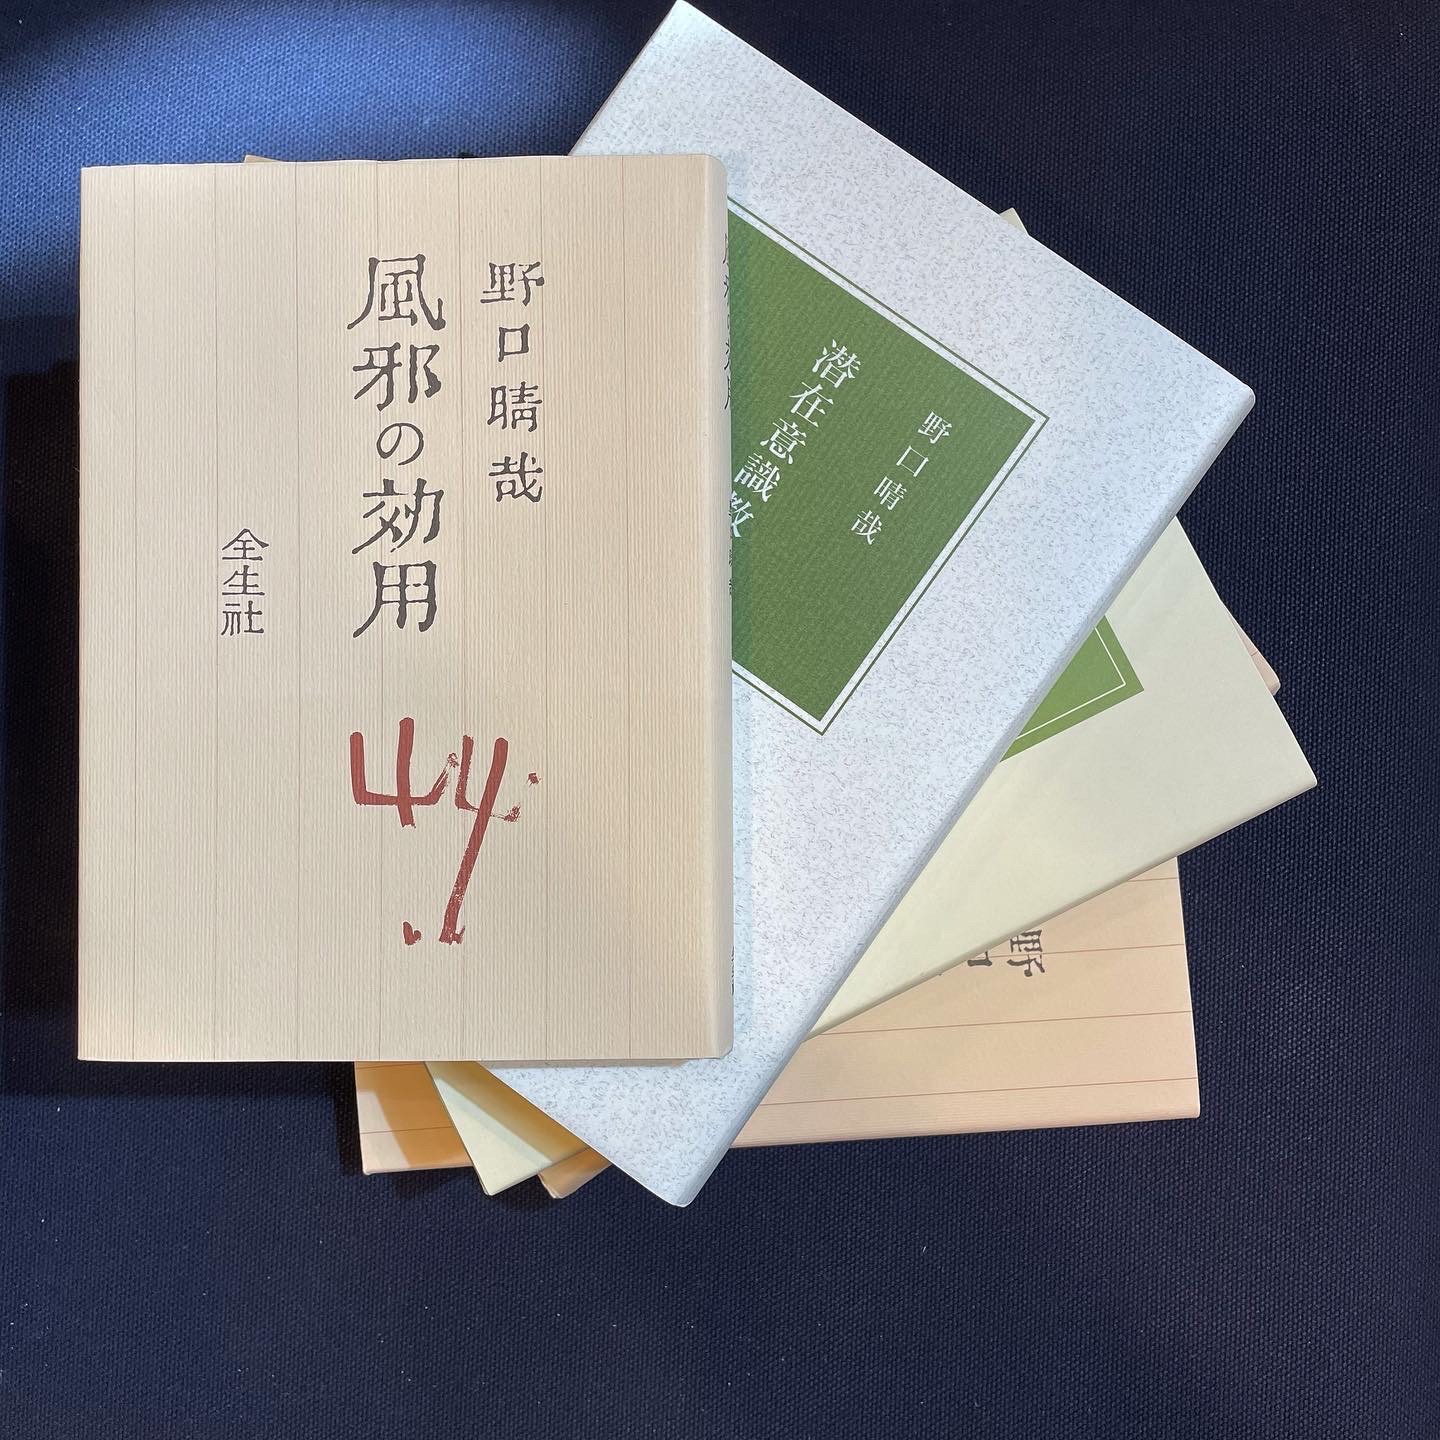 野口晴哉
風邪の効用
全生社
野口晴哉
潜在意識教
野
口